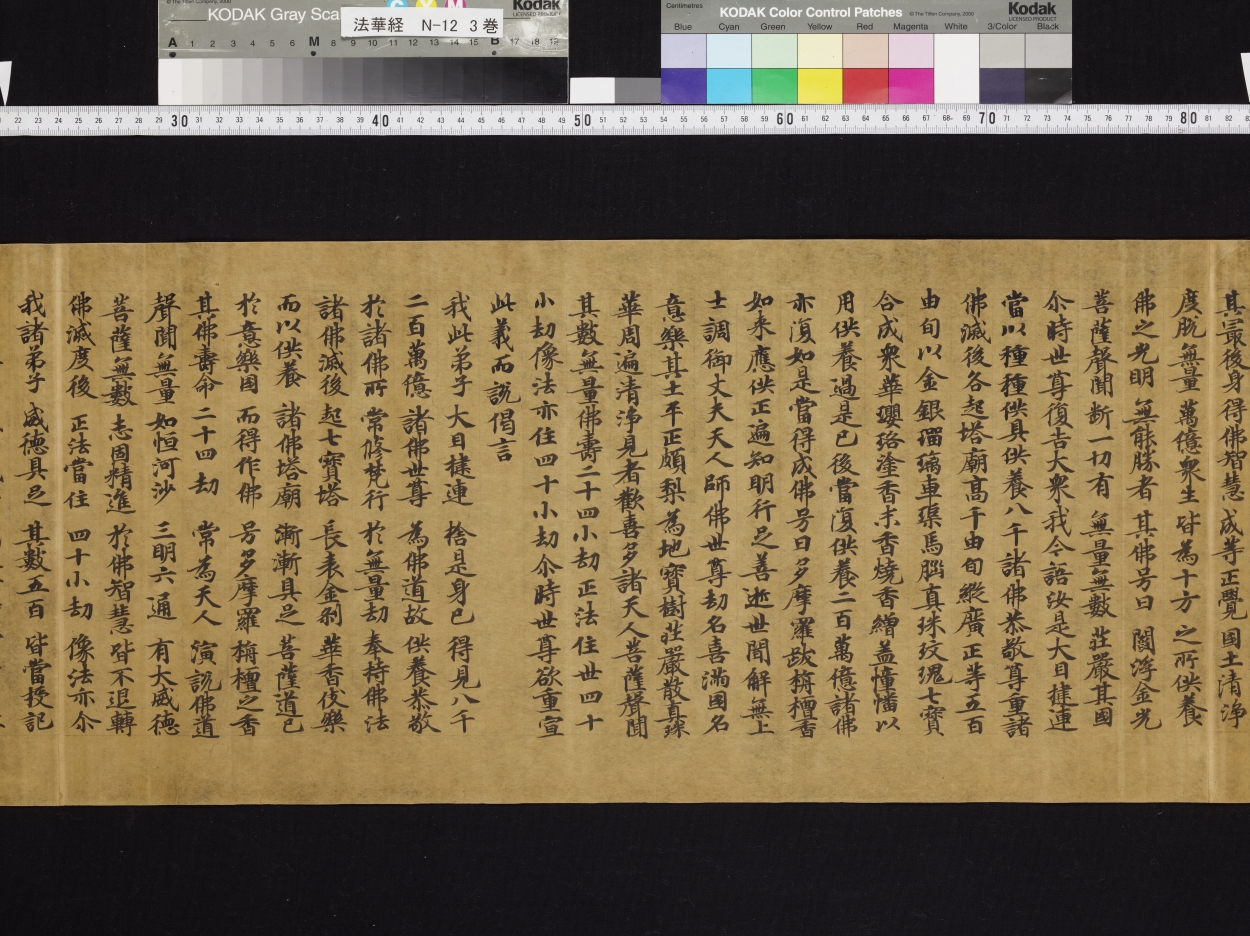 KODAK Gray Sca
© The Tiffen Company, 2000
C Y M
Kodak
LICENSED PRODUCT
法華経 N-12 3巻
A 1 2 3 4 5 6 M 8 9 10 11 12 13 14 15 B 17 18 19
Centimetres
KODAK Color Control Patches
© The Tiffen Company, 2000
Kodak
LICENSED PRODUCT
Blue Cyan Green Yellow Red Magenta White 3/Color Black
22 23 24 25 26 27 28 29 30 31 32 33 34 35 36 37 38 39 40 41 42 43 44 45 46 47 48 49 50 51 52 53 54 55 56 57 58 59 60 61 62 63 64 65 66 67 68 69 70 71 72 73 74 75 76 77 78 79 80 81 82
其最後身 得佛智慧 成等正覺 國土清淨
度脱無量 萬億衆生 皆為十方 之所供養
佛之光明 無能勝者 其佛号曰 閻浮金光
菩薩聲聞 断一切有 無量無數 莊嚴其國
尒時世尊復告大衆我今語汝是大目揵連
當以種種供具供養八千諸佛恭敬尊重諸
佛滅後各起塔廟高千由旬縱廣正等五百
由旬以金銀瑠璃車𤦲馬腦真珠玫瑰七寶
合成衆華瓔珞塗香末香燒香繒盖憧幡以
用供養過是已後當復供養二百萬億諸佛
亦復如是當得成佛号曰多摩羅跋栴檀香
如来應供正遍知明行足善逝世間解無上
士調御丈夫天人師佛世尊劫名喜滿國名
意樂其土平正頗梨為地寶樹莊嚴散真珠
華周遍清淨見者歡喜多諸天人菩薩聲聞
其數無量佛壽二十四小劫正法住世四十
小劫像法亦住四十小劫尒時世尊欲重宣
此義而說偈言
我此弟子 大目揵連 捨是身已 得見八千
二百萬億 諸佛世尊 為佛道故 供養恭敬
於諸佛所 常修梵行 於無量劫 奉持佛法
諸佛滅後 起七寶塔 長表金刹 華香伎樂
而以供養 諸佛塔廟 漸漸具足 菩薩道已
於意樂國 而得作佛 号多摩羅 栴檀之香
其佛壽命 二十四劫 常為天人 演說佛道
聲聞無量 如恒河沙 三明六通 有大威德
菩薩無數 志固精進 於佛智慧 皆不退轉
佛滅度後 正法當住 四十小劫 像法亦尒
我諸弟子 威德具足 其數五百 皆當授記